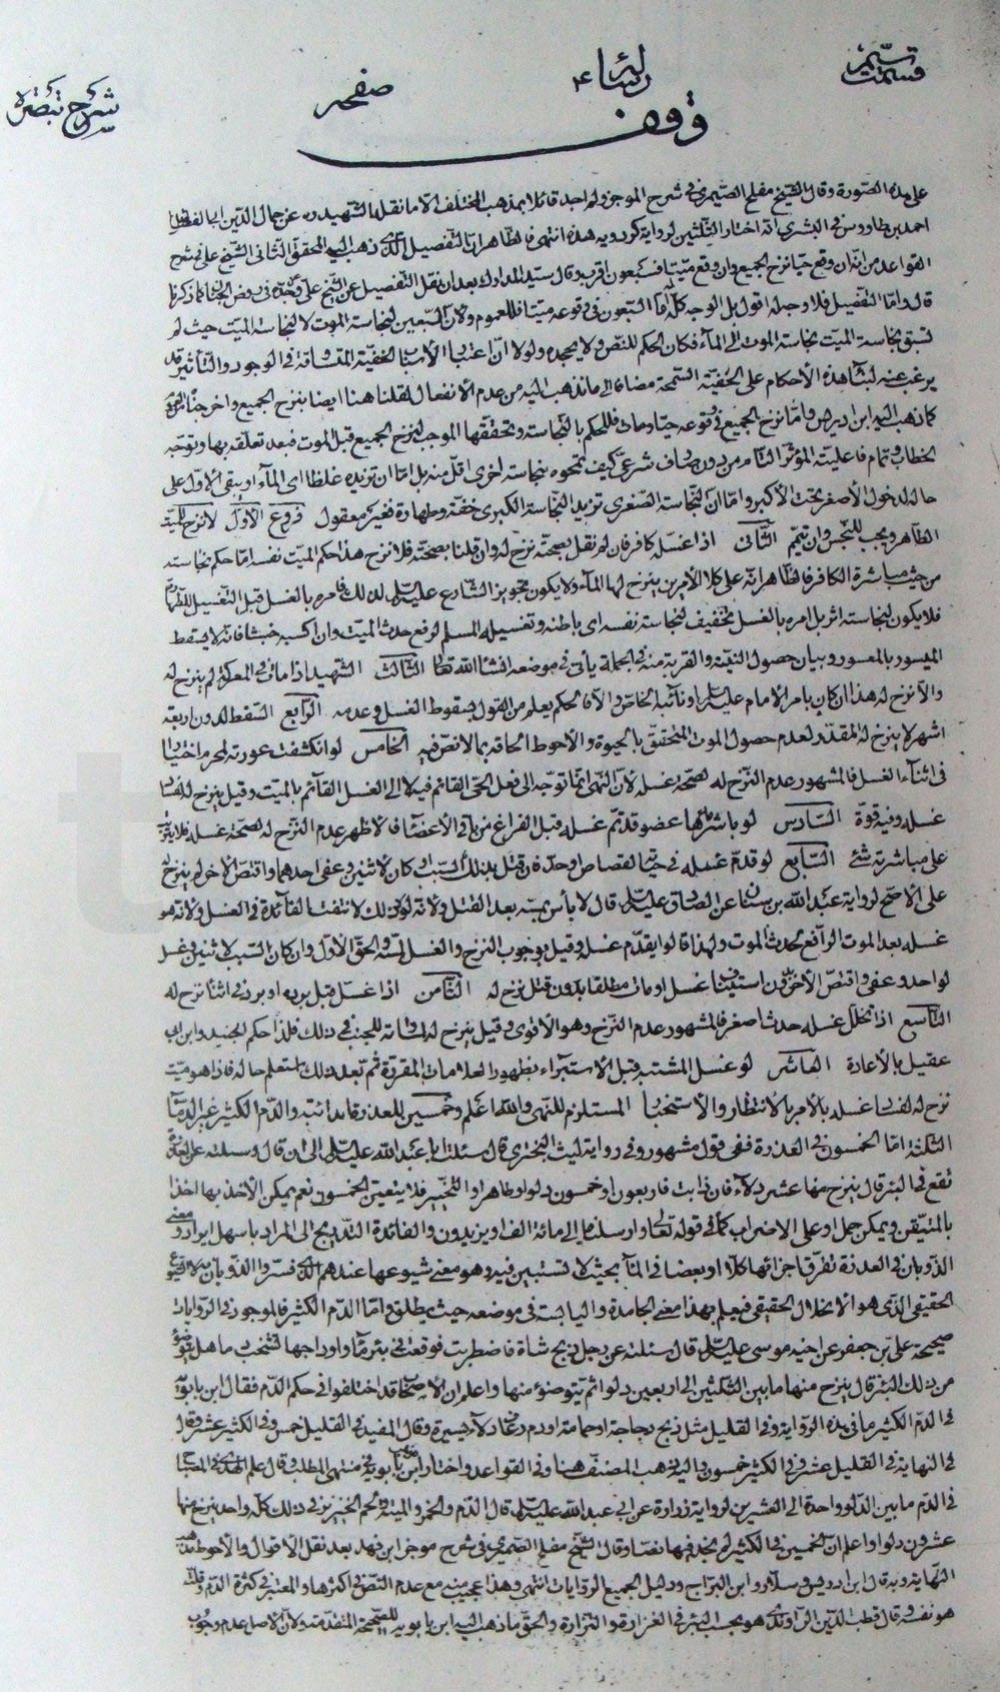 شرح تبصره
صفحه
وقف
على هذه الصورة وقال الشيخ مفلح الصيمرى فى شرح الموجز ولم اجد قائلا بمذهب المختلف الا ما نقله الشهيد ره عن جمال الدين ابى الفضائل
احمد بن طاووس فى البشرى انه اختار الثلثين لرواية كردويه هذه انتهى فالظاهر ان التفصيل الذى ذهب اليه المحقق الثانى الشيخ على فى شرح
القواعد من انه ان وقع حيا نزح الجميع وان وقع ميتا فسبعون اقرب وقال سيد المدارك بعد ان نقل التفصيل عن الشيخ على
قال واما التفصيل فلا وجه له اقول بل الوجه كله اما السبعون فى وقوعه ميتا فللعموم ولان السبعين لنجاسة الموت لا لنجاسة الميت حيث لم
تسبق نجاسة الميت نجاسة الموت الى الماء فكان الحكم للنص ولا يجده ولولا ان
يرغب عنه لبنا هذه الاحكام على الحنيفية السمحة مضافا الى ما نذهب اليه من عدم الانفعال لقلنا هنا ايضا بنزح الجميع
كما ذهب اليه ابن ادريس واما نزح الجميع فى وقوعه حيا ومات فللحكم بالنجاسة وتحققها الموجب لنزح الجميع قبل الموت فبعد تعلقه بها وتوجه
الخطاب وتمام فاعلية المؤثر التام من دون صارف شرعى كيف تمحوه نجاسة اخرى اقل منه بل اما ان تزيده غلظا اى الماء او يبقى الاول على
حاله لدخول الاصغر تحت الاكبر واما ان النجاسة الصغرى تزيد النجاسة الكبرى خفة وطهارة فغير معقول فروع الاول لا نزح للميت
الطاهر ويجب للنجس وان تيمم الثانى اذا غسله كافر فان لم نقل بصحته نزح له وان قلنا بصحته فلا نزح هذا حكم الميت نفسه اما حكم نجاسته
من حيث مباشرة الكافر فالظاهر انه على كلا الامرين ينزح لها الماء ولا يكون تجويز الشارع عليه السلام لذلك فامره بالغسل قبل التغسيل
فلا يكون لنجاسته اثر بل امره بالغسل تخفيف لنجاسة نفسه اى باطنه وتغسيله المسلم لرفع حدث الميت وان اكسبه خبثا فانه لا يسقط
الميسور بالمعسور وبيان حصول النية والقربة منه فى الجملة يأتى فى موضعه انشاء الله تعالى الثالث الشهيد اذا مات فى المعركة لم ينزح له
والا نزح له هذا ان كان بامر الامام عليه السلام او نائبه الخاص والا فالحكم يعلم من القول بسقوط الغسل وعدمه الرابع السقط لدون اربعة
اشهر لا ينزح له المقدر لعدم حصول الموت المتحقق بالحيوة والاحوط الحاقه بما لا نص فيه الخامس لو انكشفت عورته لمحرم اختيارا
فى اثناء الغسل فالمشهور عدم النزح له لصحة غسله لان النهى انما توجه الى فعل الحى القائم فيه لا الى الغسل القائم بالميت وقيل ينزح له لفساد
غسله وفيه قوة السادس لو باشرها عضو قد تم غسله قبل الفراغ من باقى الاعضاء فالاظهر عدم النزح له لصحة غسله فلا
على مباشرته شئ السابع لو قدم غسله فى حيوته لقصاص او حد فان قتل بذلك السبب او كان لاثنين وعفى احدهما واقتص الاخر لم ينزح له
على الاصح لرواية عبد الله بن سنان عن الصادق عليه السلام قال لا بأس بمسه بعد القتل ولانه لولا ذلك لانتفت الفائدة فى الغسل ولانه هو
غسله بعد الموت الرافع لحدث الموت ولهذا قالوا يقدم غسله وقيل بوجوب النزح والغسل لمسه والحق الاول وان كان السبب لاثنين وغسل
لواحد وعفى واقتص الاخر فان استيناف غسل او مات مطلقا بدون قتل نزح له الثامن اذا غسل قبل برده او برد فى اثنائه نزح له
التاسع اذا تخلل غسله حدث اصغر فالمشهور عدم النزح وهو الاقوى وقيل ينزح له لمساواته للجنب فى ذلك فلذا حكم الجنيد وابن ابى
عقيل بالاعادة العاشر لو غسل المشتبه قبل الاستبراء بظهور العلامات المقررة ثم بعد ذلك لم تعلم حاله فاذا هو ميت
نزح له لفساد غسله بالامر بالانتظار والاستخبار المستلزم للنهى والله اعلم وخمسين للعذرة الذائبة والدم الكثير غير الدماء
الثلثة اما الخمسون فى العذرة ففى قول مشهور وفى رواية ليث البخترى قال سئلت ابا عبد الله عليه السلام الى ان قال وسئلته عن العذرة
تقع فى البئر قال ينزح منها عشر دلاء فان ذابت فاربعون او خمسون دلوا وظاهر او التخيير فلا يتعين الخمسون نعم يمكن الاخذ بها اخذا
بالمتيقن ويمكن حمل او على الاضراب كما فى قوله تعالى وارسلناه الى مائة الف او يزيدون والفائدة التدريج الى المراد باسهل ايراد ومعنى
الذوبان فى العذرة تفرق اجزائها كلا او بعضا فى الماء بحيث لا تستبين فيه وهو معنى شيوعها عندهم الذى فسروا الذوبان به
الحقيقى الذى هو الانحلال الحقيقى فيعلم بهذا معنى الجامدة واليابسة فى موضعه حيث يطلق واما الدم الكثير فالموجود فى الروايات
صحيحة على بن جعفر عن اخيه موسى عليه السلام قال سئلته عن رجل ذبح شاة فاضطربت فوقعت فى بئر ماء واوداجها تشخب دما هل يتوضؤ
من ذلك البئر قال ينزح منها ما بين الثلثين الى اربعين دلوا ثم يتوضؤ منها واعلم ان الاصحاب قد اختلفوا فى حكم الدم فقال ابن بابويه
فى الدم الكثير ما فى هذه الرواية وفى القليل مثل ذبح دجاجة او حمامة او دم رعاف دلاء يسيرة وقال المفيد فى القليل خمس وفى الكثير عشر وقال
فى النهاية فى القليل عشر وفى الكثير خمسون واليه ذهب المصنف هنا وفى القواعد واختار ابن بابويه فى منتهى المطلب وقال علم الهدى فى المصباح
فى الدم ما بين الدلو الواحدة الى العشرين لرواية زرارة عن ابى عبد الله عليه السلام قال الدم والخمر والميت ولحم الخنزير فى ذلك كله واحد ينزح منها
عشرون دلوا واعلم ان الخمسين فى الكثير لم نجد فيها نصا وقال الشيخ مفلح الصيمرى فى شرح موجز ابن فهد بعد نقل الاقوال والاحوط مذهب
النهاية وبه قال ابن ادريس وسلار وابن البراج ودليل الجميع الروايات انتهى وهذا عجيب منه مع عدم النص فى اكثرها والمعتبر فى كثرة الدم وقلته
هو نفسه وقال قطب الدين الراوندى هو بحسب البئر فى الغزارة والنزارة والحق ما ذهب اليه ابن بابويه للصحيحة المتقدمة ولان الاصل عدم وجوب